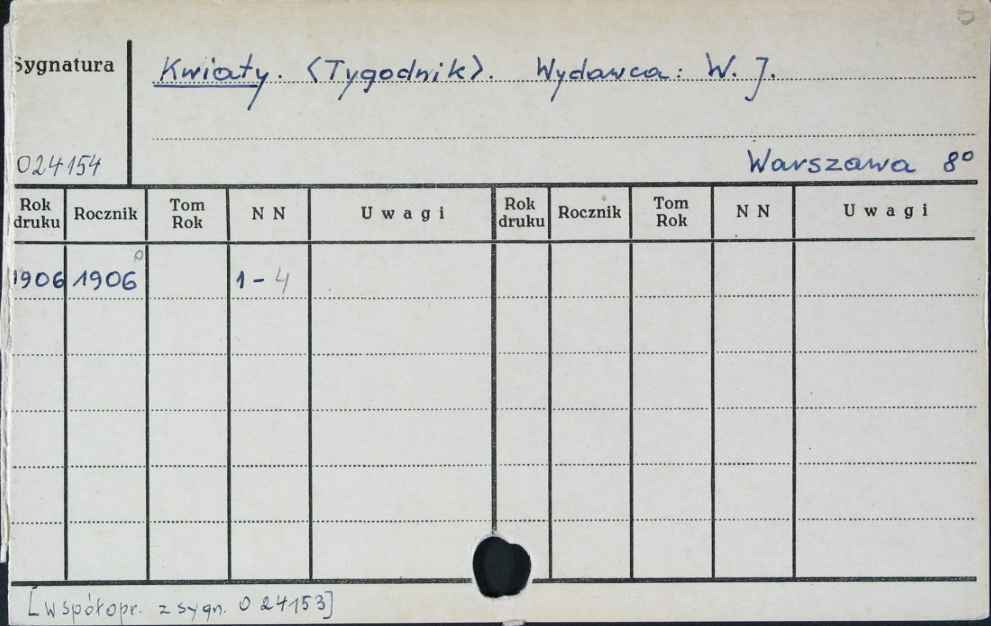 Sygnatura
Kwiaty. <Tygodnik>. Wydawca: W. J.
024154
Warszawa 8º
Rok druku Rocznik Tom Rok N N Uwagi Rok druku Rocznik Tom Rok N N Uwagi
1906 1906 1 - 4
[współopr. z sygn. 024153]